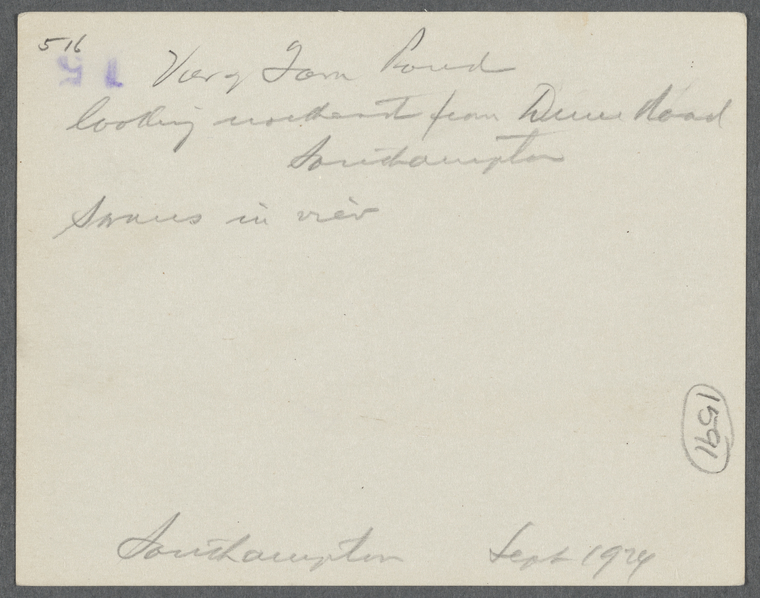 516
51
View of Town Pond
looking northeast from Dune Road
Southampton
Swans in view
1591
Southampton Sept 1924